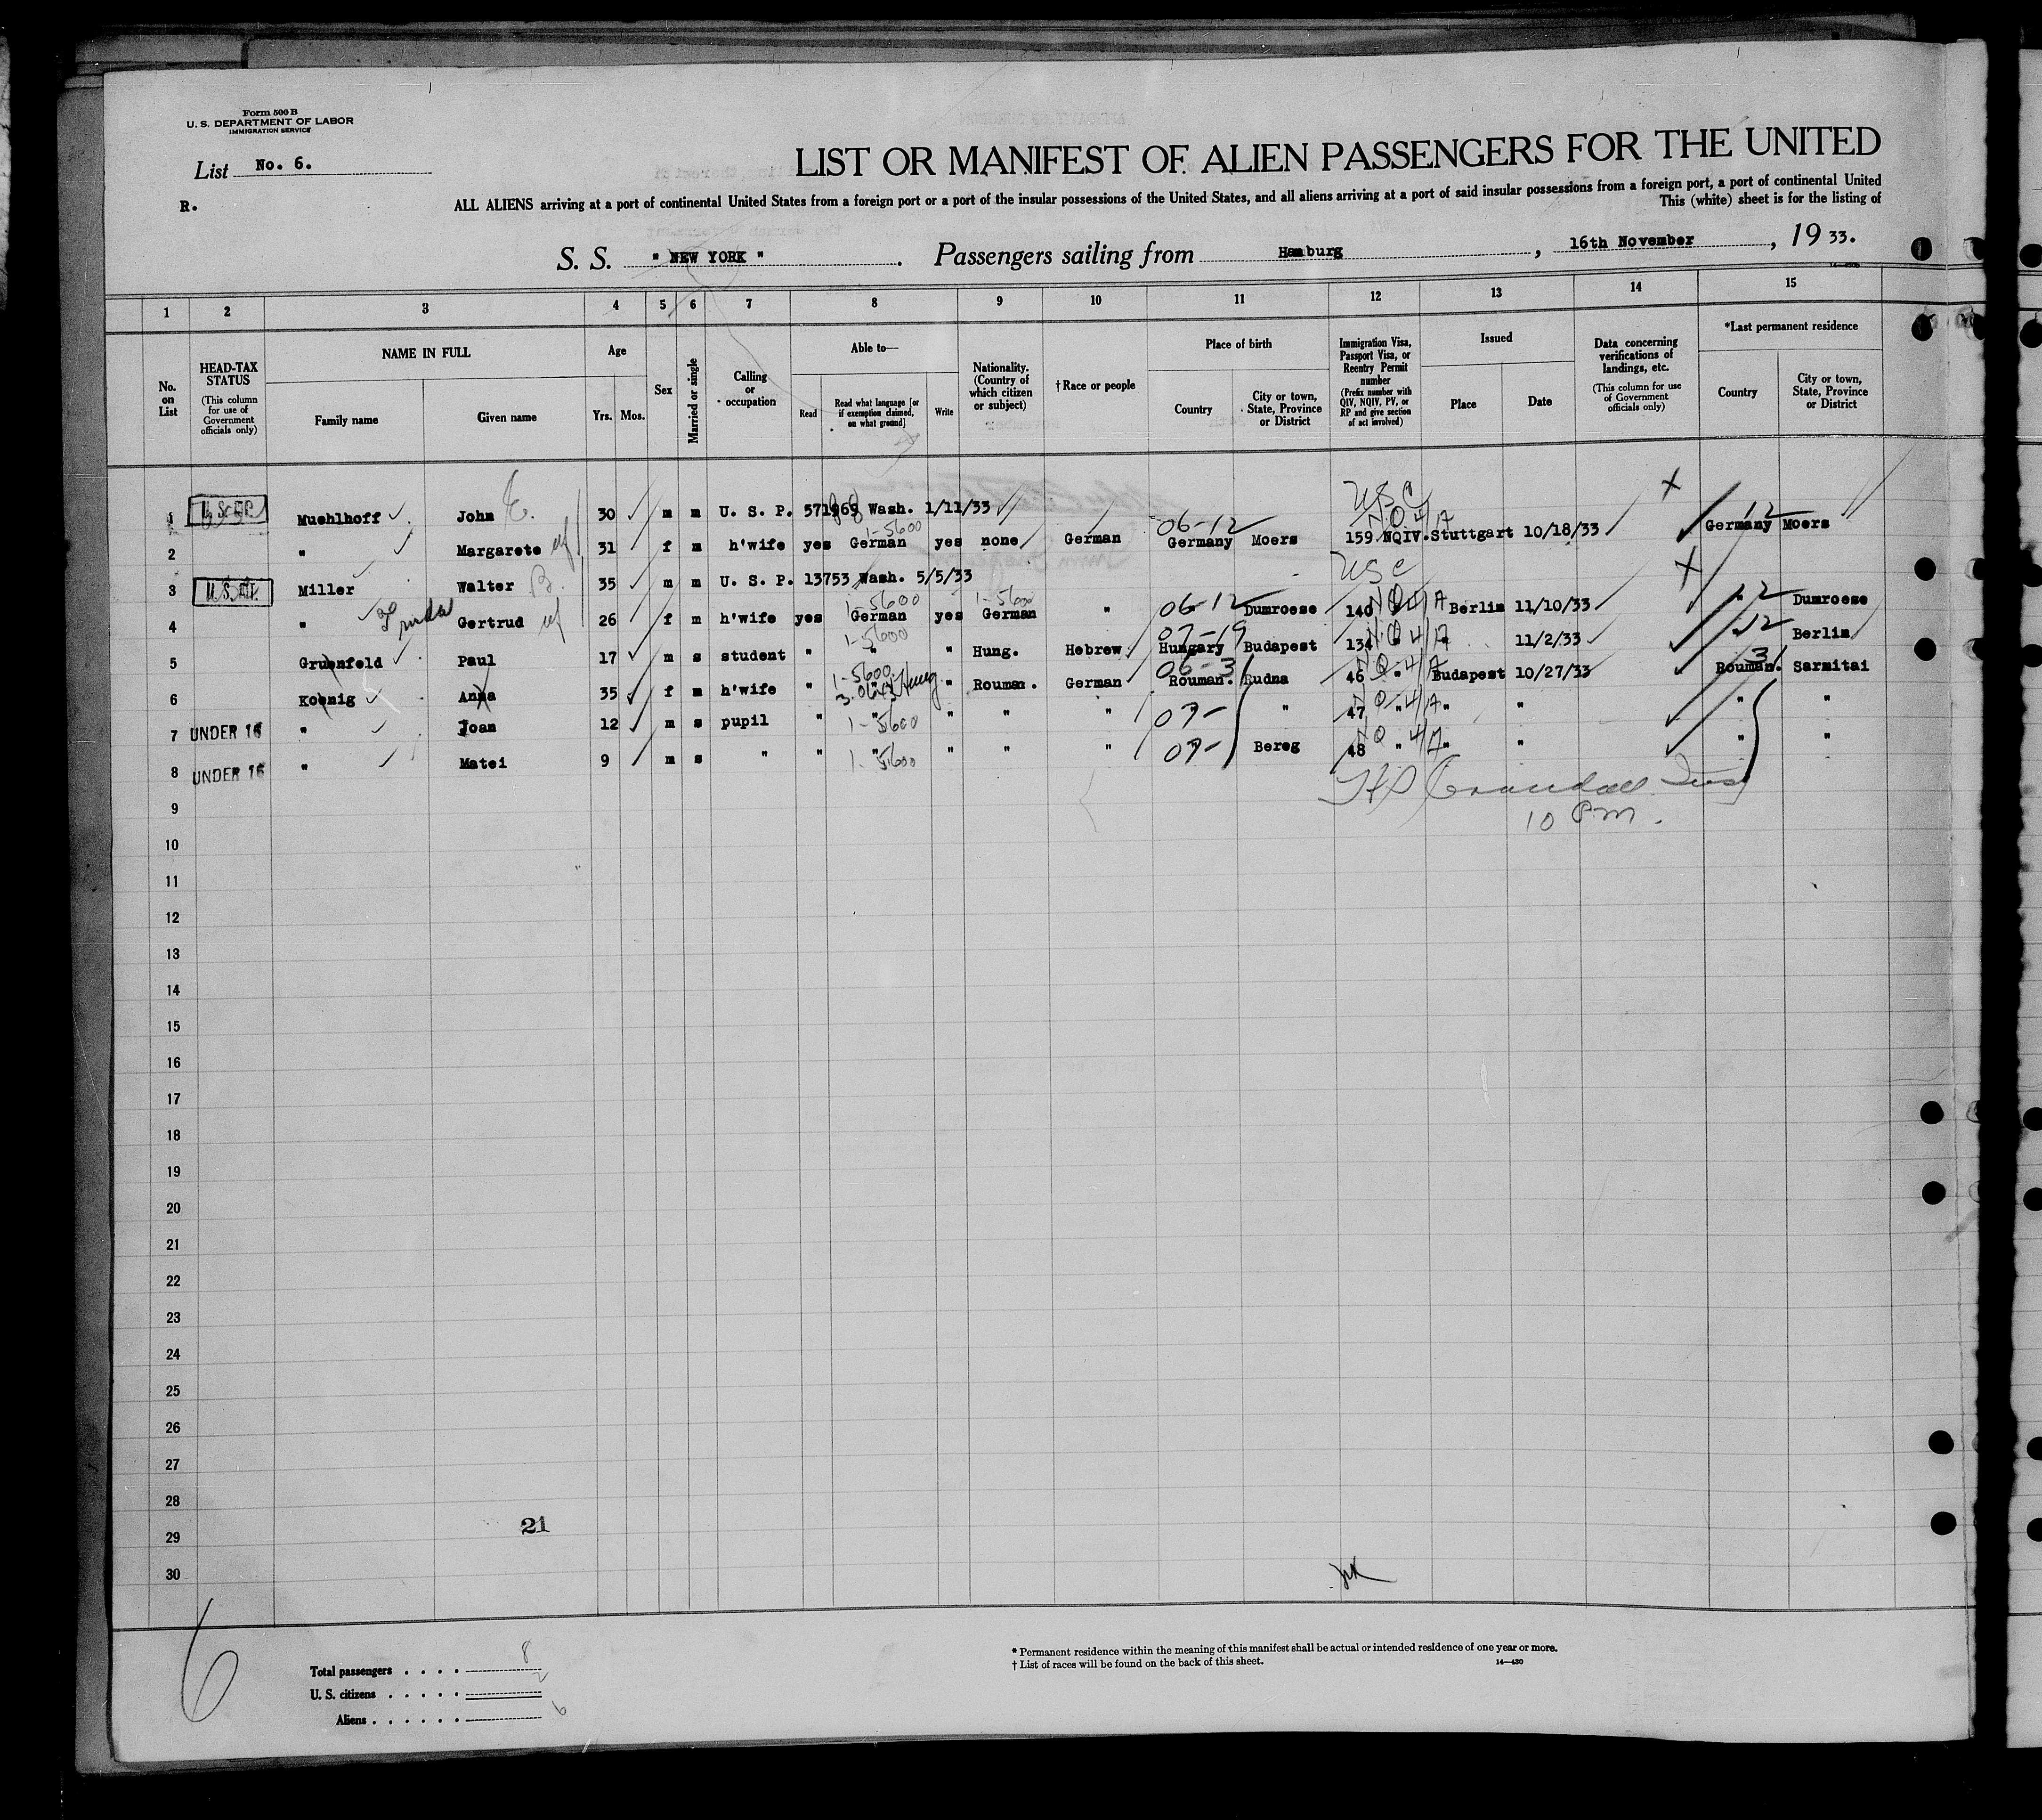 Form 500 B
U. S. DEPARTMENT OF LABOR
IMMIGRATION SERVICE
List No. 6.
R.
LIST OR MANIFEST OF ALIEN PASSENGERS FOR THE UNITED
ALL ALIENS arriving at a port of continental United States from a foreign port or a port of the insular possessions of the United States, and all aliens arriving at a port of said insular possessions from a foreign port, a port of continental United
This (white) sheet is for the listing of
S. S. " NEW YORK " . Passengers sailing from Hamburg , 16th November , 19 33.
1 2 3 4 5 6 7 8 9 10 11 12 13 14 15
No. on List
HEAD-TAX STATUS (This column for use of Government officials only)
NAME IN FULL
Family name Given name
Age
Yrs. Mos.
Sex
Married or single
Calling or occupation
Able to—
Read Read what language [or if exemption claimed, on what ground] Write
Nationality. (Country of which citizen or subject)
†Race or people
Place of birth
Country City or town, State, Province or District
Immigration Visa, Passport Visa, or Reentry Permit number (Prefix number with QIV, NQIV, PV, or RP and give section of act involved)
Issued
Place Date
Data concerning verifications of landings, etc. (This column for use of Government officials only)
*Last permanent residence
Country City or town, State, Province or District
USC
1 Muehlhoff John E. 30 m m U. S. P. 571969 Wash. 1/11/33
1-5600 06-12 NQ 4/A 12
2 " Margarete wf 31 f m h'wife yes German yes none German Germany Moers 159 NQIV. Stuttgart 10/18/33 Germany Moers
USC
3 Miller Walter B. 35 m m U. S. P. 13753 Wash. 5/5/33
1-5600 1-5600 06-12 NQ 4/A 12
4 " Gertrud wf 26 f m h'wife yes German yes German " " Dumroese 140 " Berlin 11/10/33 " Dumroese
1-5600 07-19 NQ 4/A 12
5 Gruenfeld Paul 17 m s student " " " Hung. Hebrew Hungary Budapest 134 " " 11/2/33 " Berlin
1-5600 06-3 NQ 4/A 3
6 Koenig Anna 35 f m h'wife " " " Rouman. German Rouman. Rudna 46 " Budapest 10/27/33 Rouman. Sarmitai
7 UNDER 16 " Joan 12 m s pupil " " 1-5600 " " " 07- " 47 " NQ 4/A " " " "
8 UNDER 16 " Matei 9 m s " " " 1-5600 " " " 07- Bereg 48 " NQ 4/A " " " "
Crandall Insp
10 P.m.
9
10
11
12
13
14
15
16
17
18
19
20
21
22
23
24
25
26
27
28
29
21
30
6
Total passengers . . . . 8
U. S. citizens . . . . . 2
Aliens . . . . . . 6
* Permanent residence within the meaning of this manifest shall be actual or intended residence of one year or more.
† List of races will be found on the back of this sheet.
14—430